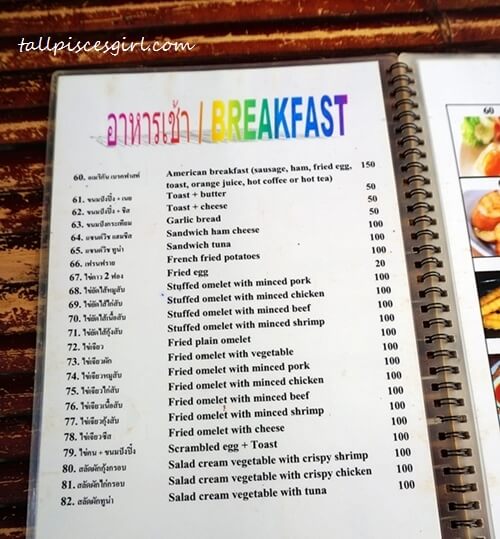 tallpiscesgirl.com
อาหารเช้า / BREAKFAST
60. อเมริกัน เบรคฟาสท์ American breakfast (sausage, ham, fried egg, 150
toast, orange juice, hot coffee or hot tea)
61. ขนมปังปิ้ง + เนย Toast + butter 50
62. ขนมปังปิ้ง + ชีส Toast + cheese 50
63. ขนมปังกระเทียม Garlic bread 50
64. แซนด์วิช แฮมชีส Sandwich ham cheese 100
65. แซนด์วิช ทูน่า Sandwich tuna 100
66. เฟรนฟราย French fried potatoes 100
67. ไข่ดาว 2 ฟอง Fried egg 20
68. ไข่ยัดไส้หมูสับ Stuffed omelet with minced pork 100
69. ไข่ยัดไส้ไก่สับ Stuffed omelet with minced chicken 100
70. ไข่ยัดไส้เนื้อสับ Stuffed omelet with minced beef 100
71. ไข่ยัดไส้กุ้งสับ Stuffed omelet with minced shrimp 100
72. ไข่เจียว Fried plain omelet 100
73. ไข่เจียวผัก Fried omelet with vegetable 100
74. ไข่เจียวหมูสับ Fried omelet with minced pork 100
75. ไข่เจียวไก่สับ Fried omelet with minced chicken 100
76. ไข่เจียวเนื้อสับ Fried omelet with minced beef 100
77. ไข่เจียวกุ้งสับ Fried omelet with minced shrimp 100
78. ไข่เจียวชีส Fried omelet with cheese 100
79. ไข่คน + ขนมปังปิ้ง Scrambled egg + Toast 100
80. สลัดผักกุ้งกรอบ Salad cream vegetable with crispy shrimp 100
81. สลัดผักไก่กรอบ Salad cream vegetable with crispy chicken 100
82. สลัดผักทูน่า Salad cream vegetable with tuna 100
60